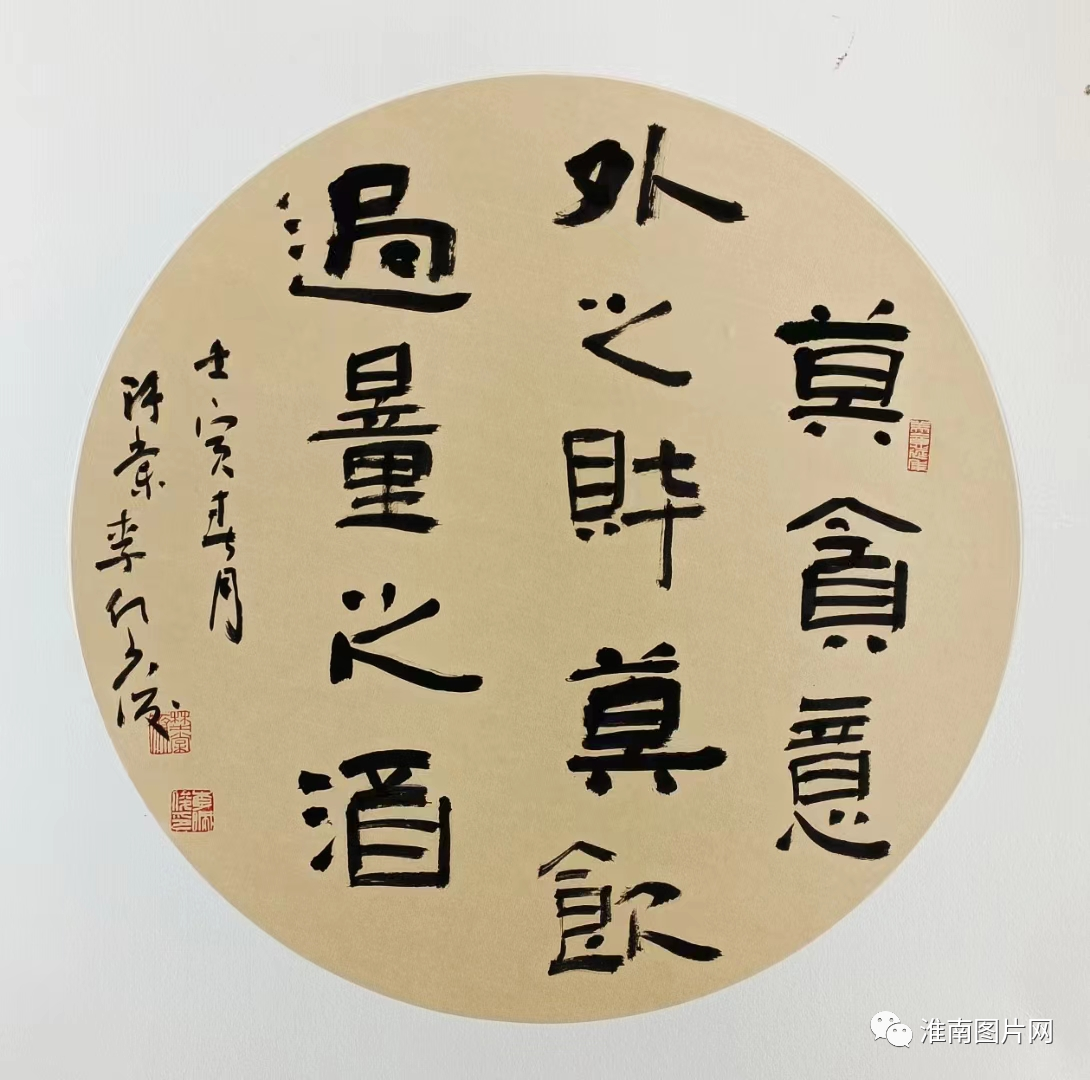 莫貪意
外之財莫飲
過量之酒
壬寅春月
李
淮南图片网